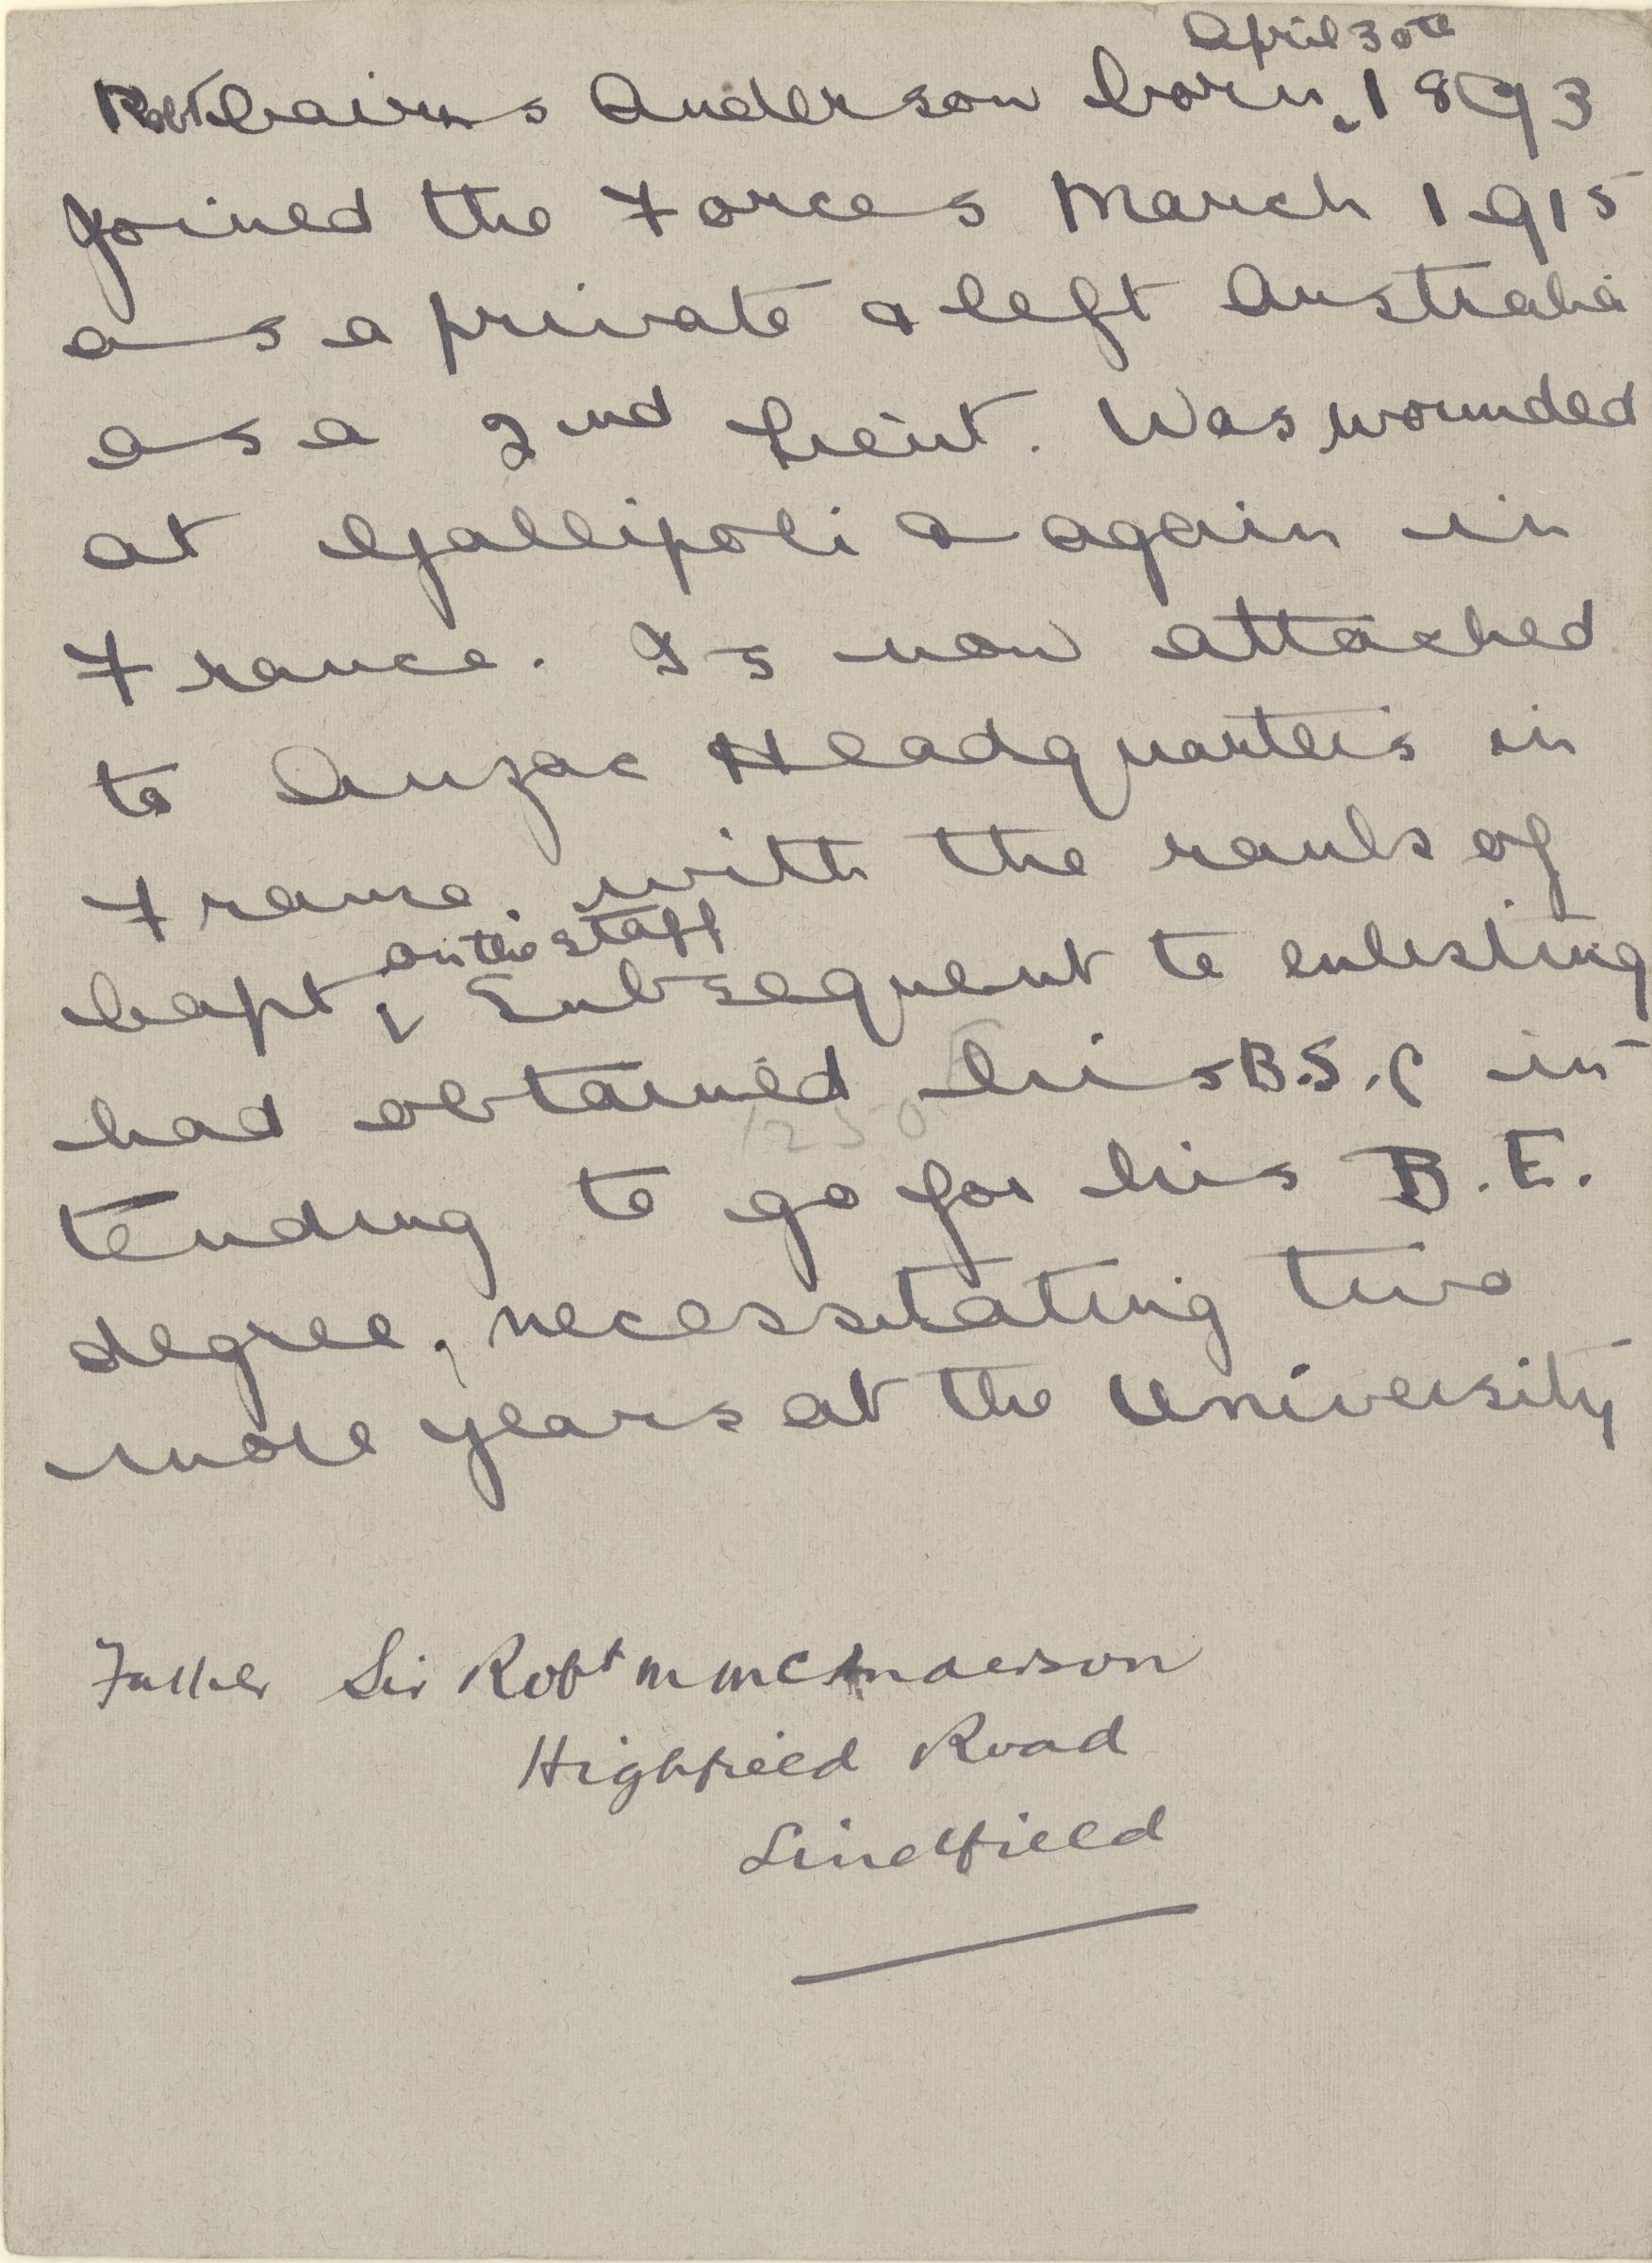 April 30th
Robt Cairns Anderson born 1893
joined the Forces March 1915
as a private & left Australia
as a 2nd Lieut. Was wounded
at Gallipoli & again in
France. Is now attached
to Anzac Headquarters in
France. with the rank of
on the staff
Capt, Subsequent to enlisting
had obtained his B.S.C in
tending to go for his B.E.
degree, necessitating two
more years at the University
Father Sir Robt M McAnderson
Highfield Road
Lindfield